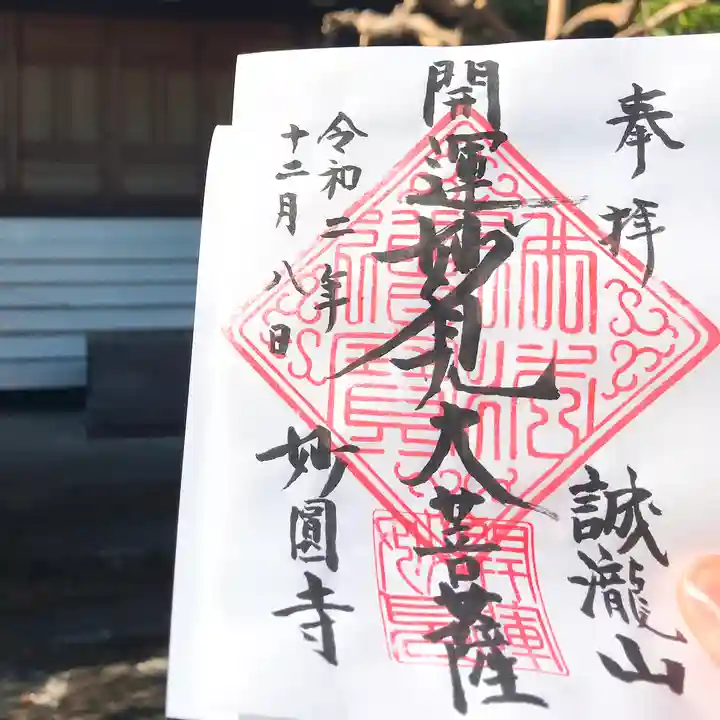 奉拝
誠瀧山
開運妙見大菩薩
令和二年
十二月八日
妙圓寺
開運
妙見